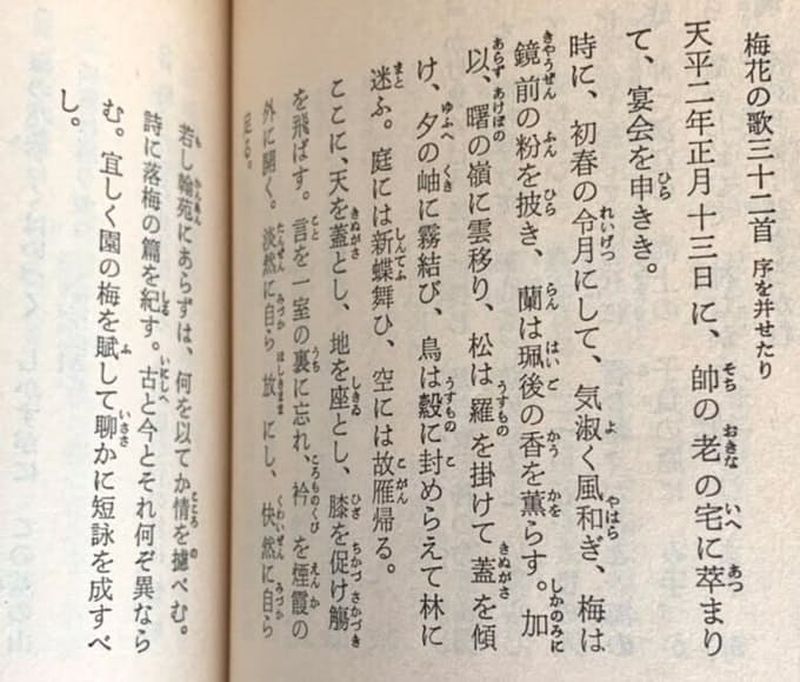 梅花の歌三十二首 序を并せたり
天平二年正月十三日に、帥の老の宅に萃まり
て、宴会を申きき。
時に、初春の令月にして、気淑く風和ぎ、梅は
鏡前の粉を披き、蘭は珮後の香を薫らす。加
以、曙の嶺に雲移り、松は羅を掛けて蓋を傾
け、夕の岫に霧結び、鳥は縠に封めらえて林に
迷ふ。庭には新蝶舞ひ、空には故雁帰る。
ここに、天を蓋とし、地を座とし、膝を促け觴
を飛ばす。言を一室の裏に忘れ、衿を煙霞の
外に開く。淡然に自ら放にし、快然に自ら
足る。
若し翰苑にあらずは、何を以てか情を攄べむ。
詩に落梅の篇を紀す。古と今とそれ何ぞ異なら
む。宜しく園の梅を賦して聊かに短詠を成すべ
し。